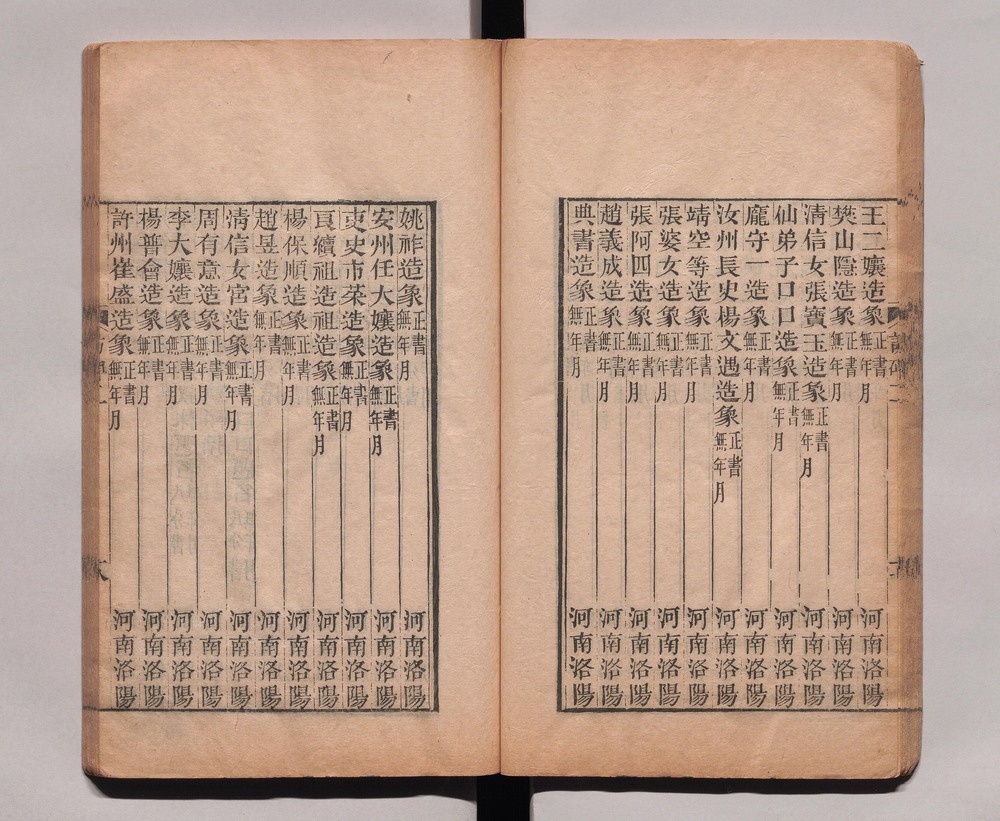 王二孃造象正書無年月 河南洛陽
樊山隱造象正書無年月 河南洛陽
清信女張寶玉造象正書無年月 河南洛陽
仙弟子口口造象正書無年月 河南洛陽
龐守一造象正書無年月 河南洛陽
汝州長史楊文遇造象正書無年月 河南洛陽
靖空等造象正書無年月 河南洛陽
張婆女造象正書無年月 河南洛陽
張阿四造象正書無年月 河南洛陽
趙義成造象正書無年月 河南洛陽
典書造象正書無年月 河南洛陽
姚祚造象正書無年月 河南洛陽
安州任大孃造象正書無年月 河南洛陽
吏史市荣造象正書無年月 河南洛陽
袁續祖造祖造象正書無年月 河南洛陽
楊保順造象正書無年月 河南洛陽
趙昱造象正書無年月 河南洛陽
清信女宮造象正書無年月 河南洛陽
周有意造象正書無年月 河南洛陽
李大孃造象正書無年月 河南洛陽
楊普會造象正書無年月 河南洛陽
許州崔盛造象正書無年月 河南洛陽